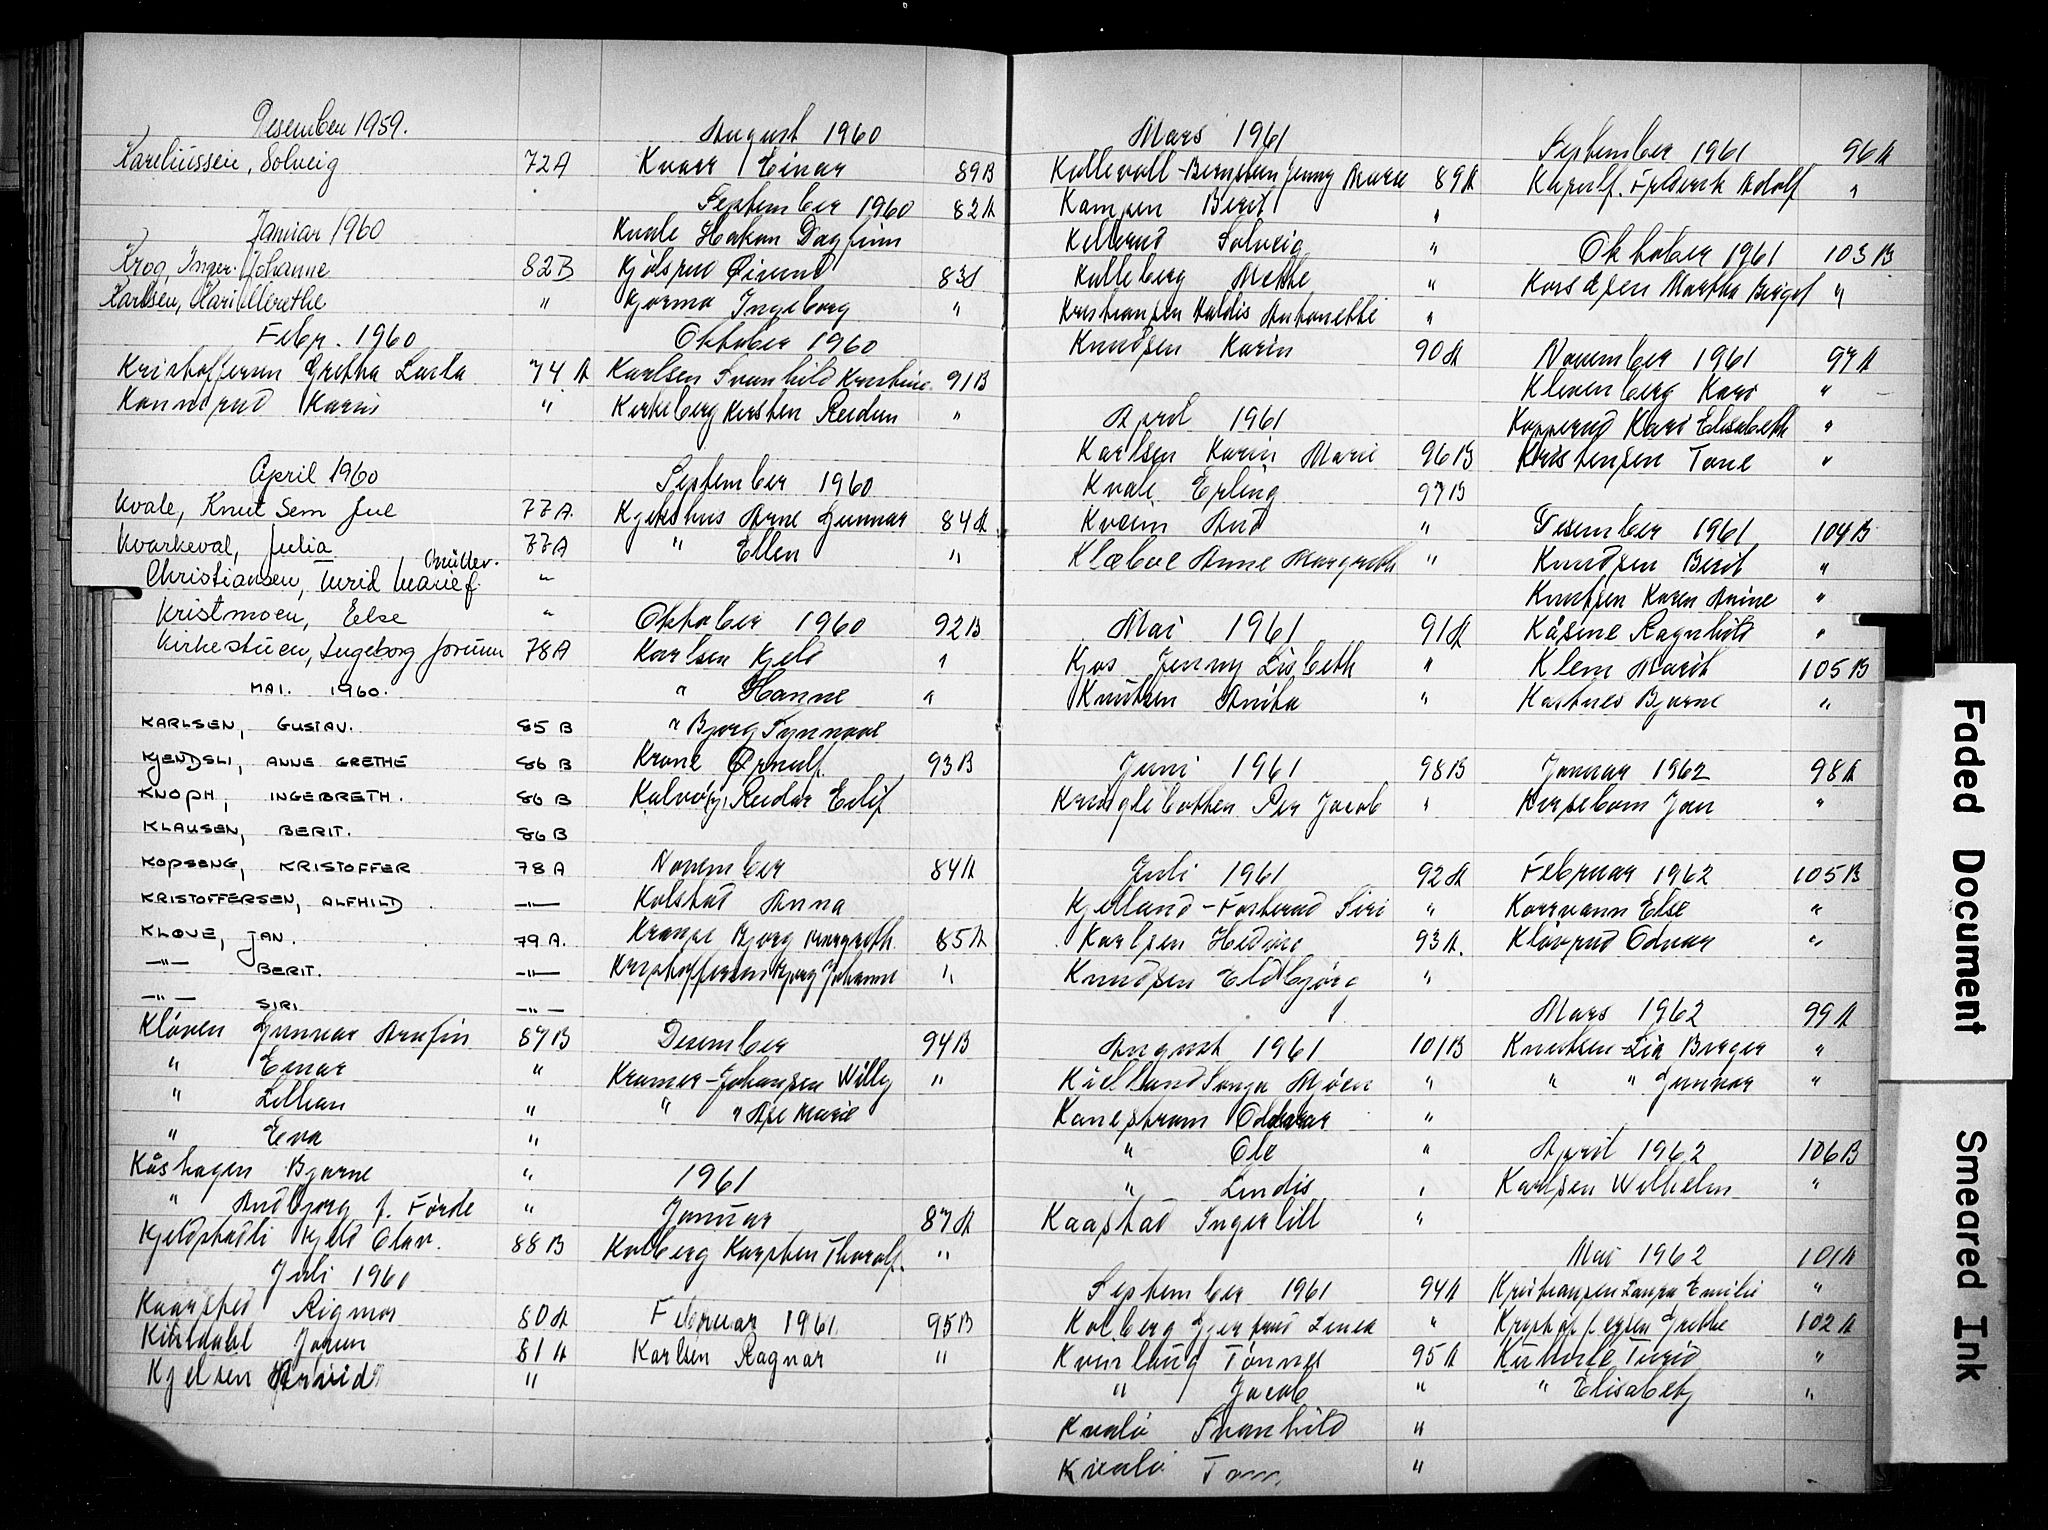 Desember 1959.
Kareliussen, Solveig 72A
Januar 1960
Krog, Inger Johanne 82B
Karlsen, Kari Merethe "
Febr. 1960
Kristoffersen Gretha Laila 74A
Kannerud Karin "
April 1960
Kvale, Knut Sem Jul 77A.
Kvarkeval, Julia 77A
Müller.
Christiansen, Turid Marie f. "
Kristmoen, Else "
Kirkestuen, Ingeborg Jorunn 78A
MAI. 1960.
KARLSEN, GUSTAV. 85 B
KJENDSLI, ANNE GRETHE 86 B
KNOPH, INGEBRETH. 86 B
KLAUSEN, BERIT. 86 B
KOPSENG, KRISTOFFER 78 A
KRISTOFFERSEN, ALFHILD —"—
KLØVE, JAN. 79 A.
—"— BERIT. —"—
—"— SIRI —"—
Kløven Gunnar Arnfin 87B
" Einar "
" Lillian "
" Eva "
Kåshagen Bjarne "
" Audbjørg f. Førde "
Kjeldstadli Kjeld Olav. 88B
Juli 1960
Kaarsted Rigmor 80A
Kihldahl Jorun 81A
Kjelsen Arvid "
August 1960
Kvarv Einar 89B
September 1960 82A
Kvale Håkon Dagfinn
Kjølsrud Øivind 83A
Kjorma Ingeborg "
Oktober 1960
Karlsen Svanhild Kristine 91B
Kirkeberg Kirsten Reidun "
September 1960
Kjekshus Arne Gunnar 84A.
" Ellen "
Oktober 1960 92B
Karlsen Kjell "
" Hanne "
" Bjørg Synnøve
Krone Ørnulf 93B
Kalvøy, Reidar Eilif
November 84A
Kolstad Anna
Krange Bjørg Margreth 85A
Kristoffersen Bjørg Johanne "
Desember 94B
Kramer-Johansen Willy "
" " Åse Marie
1961
Januar 87A
Kolberg Karsten Thoralf. "
Februar 1961 95B
Karlsen Ragnar "
Mars 1961
Kullevoll-Berntsen Jenny Marie 89A
Kampen Berit "
Kellerud Solveig "
Kulleberg Mette "
Kristiansen Haldis Antonette "
Knudsen Karin 90A
April 1961
Karlsen Karin Marie 96B
Kvale Erling 97B
Kveim Aud "
Klæboe Anne Margreth "
Mai 1961 91A
Kjos Jenny Lisbeth "
Knutsen Anita "
Juni 1961 98B
Kringlebotten Per Jacob "
Juli 1961 92A
Kjelland-Fosterud Siri "
Karlsen Hedvig 93A.
Knudsen Eldbjørg "
August 1961 101B
Kjelland Sonja Mjøen "
Kanestrøm Oddvar "
" Ole "
" Lindis "
Kaastad Ingerlill "
September 1961 94A
Kolberg Gjertrud Linea "
Kvinlaug Tønnes 95A
" Jacob "
Kvalø Svanhild "
Kvalø Tom "
September 1961 96A
Kürulf. Fredrik Adolf "
Oktober 1961 103B
Korsæzen Martha Birgit "
November 1961 97A
Klevenberg Kari "
Kopperud Kari Elisabeth "
Kristensen Tone "
Desember 1961 104B
Knudsen Berit "
Knutsen Karen Anine "
Kåsine Ragnhild "
Klem Marit 105B
Kastnes Bjarne "
Januar 1962 98A
Kirsebom Jan "
Februar 1962 105B
Korsvann Else "
Kløvrud Odvar "
Mars 1962 99A
Knutsen-Lia Birger "
" " Gunvor "
April 1962 106B
Karlsen Wilhelm "
Mai 1962 101A
Kristiansen Laura Emilie "
Kristoffersen Grethe 102A
Kuhnle Turid "
" Elisabeth "
Faded Document
Smeared Ink